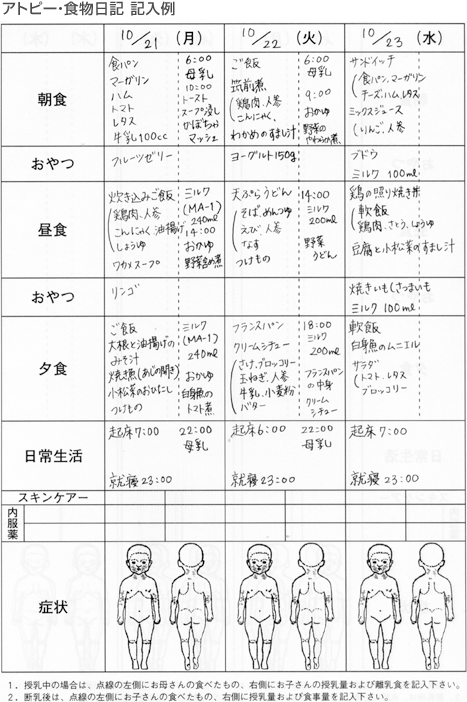 アトピー・食物日記 記入例
10/21 (月)
10/22 (火)
10/23 (水)
朝食
食パン
マーガリン
ハム
トマト
レタス
牛乳100cc
6:00
母乳
10:00
トースト
スープ浸し
かぼちゃ
マッシュ
ご飯
筑前煮
(鶏肉、人参
こんにゃく、
わかめのすまし汁
6:00
母乳
9:00
おかゆ
野菜の
やわらか煮
サンドイッチ
(食パン、マーガリン
チーズ、ハム、レタス
ミックスジュース
(りんご、人参
おやつ
フルーツゼリー
ヨーグルト150g
ブドウ
ミルク 100ml
昼食
炊き込みご飯
(鶏肉、人参
こんにゃく 油揚げ
しょうゆ
ワカメスープ
ミルク
(MA-1)
240ml
14:00
おかゆ
野菜含め煮
天ぷらうどん
(そば、めんつゆ
えび、人参
なす
つけもの
14:00
ミルク
200ml
野菜
うどん
鶏の照り焼き丼
(軟飯
鶏肉、さとう、しょうゆ
豆腐と小松菜のすまし汁
おやつ
リンゴ
焼きいも(さつまいも
ミルク 100ml
夕食
ご飯
大根と油揚げの
みそ汁
焼き魚(あじの開き)
小松菜のおひたし
つけもの
ミルク
(MA-1)
240ml
おかゆ
白身魚の
トマト煮
フランスパン
クリームシチュー
(さけ、ブロッコリー
玉ねぎ、人参
牛乳、小麦粉
バター
18:00
ミルク
200ml
フランスパン
の中身
クリーム
シチュー
軟飯
白身魚のムニエル
サラダ
(トマト、レタス
ブロッコリー
日常生活
起床 7:00
22:00
母乳
就寝 23:00
起床 6:00
22:00
母乳
就寝 23:00
起床 7:00
就寝 23:00
スキンケアー
内服薬
症状
1．授乳中の場合は、点線の左側にお母さんの食べたもの、右側にお子さんの授乳量および離乳食を記入下さい。
2．断乳後は、点線の左側にお子さんの食べたもの、右側に授乳量および食事量を記入下さい。